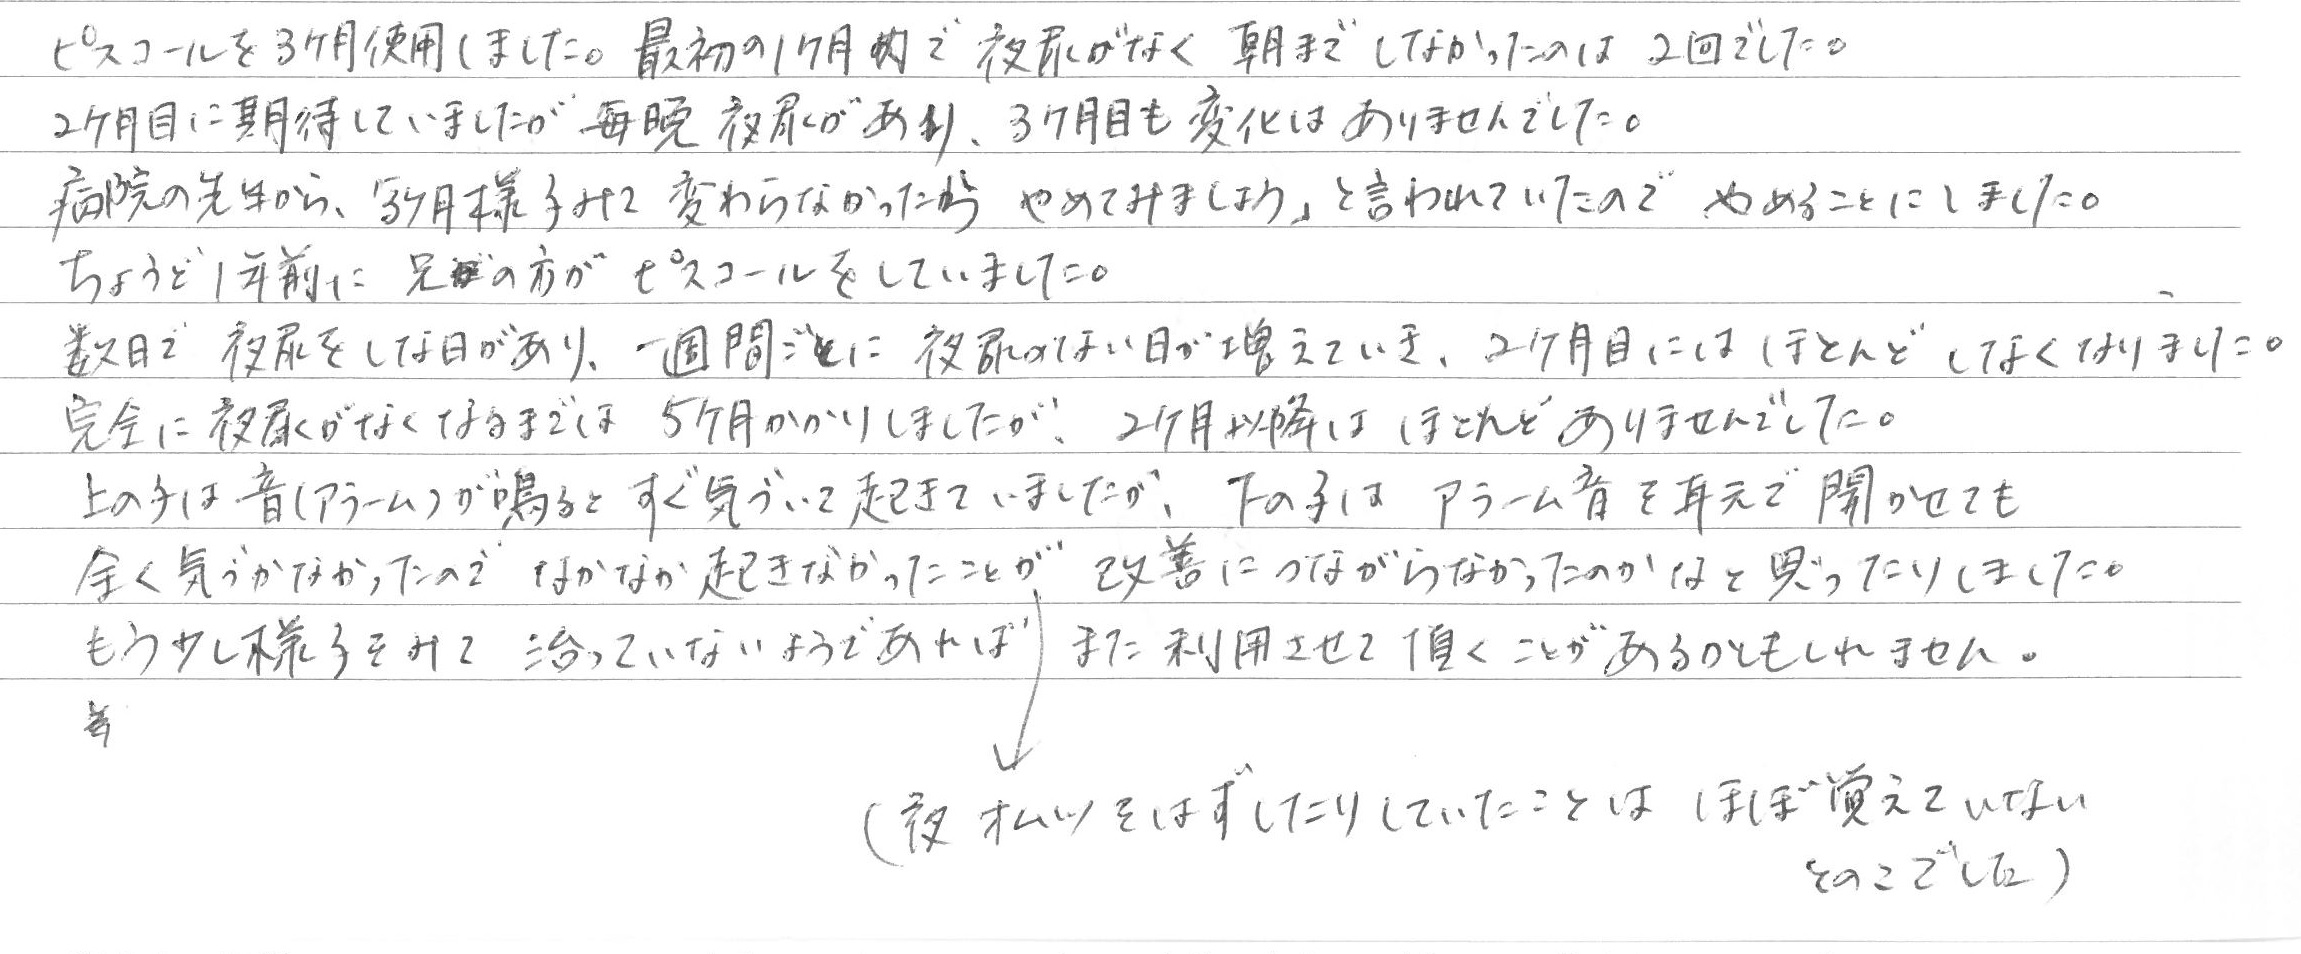 ピスコールを3ヶ月使用しました。最初の1ヶ月内で夜尿がなく朝までしなかったのは2回でした。
2ヶ月目に期待していましたが毎晩夜尿があり、3ヶ月目も変化はありませんでした。
病院の先生から、「3ヶ月様子みて変わらなかったら やめてみましょう」と言われていたので やめることにしました。
ちょうど1年前に兄の方がピスコールをしていました。
数日で夜尿をしな日があり、一週間ごとに夜尿のない日が増えていき、2ヶ月目にはほとんどしなくなりました。
完全に夜尿がなくなるまでは5ヶ月かかりしましたが、2ヶ月以降はほとんどありませんでした。
上の子は音(アラーム)が鳴るとすぐ気づいて起きていましたが、下の子はアラーム音を耳元で聞かせても
全く気づかなかったので なかなか起きなかったことが改善につながらなかったのかなと思ったりしました。
もう少し様子をみて治っていないようであればまた利用させて頂くことがあるかもしれません。
(夜オムツをはずしたりしていたことはほぼ覚えていない
とのことでした)